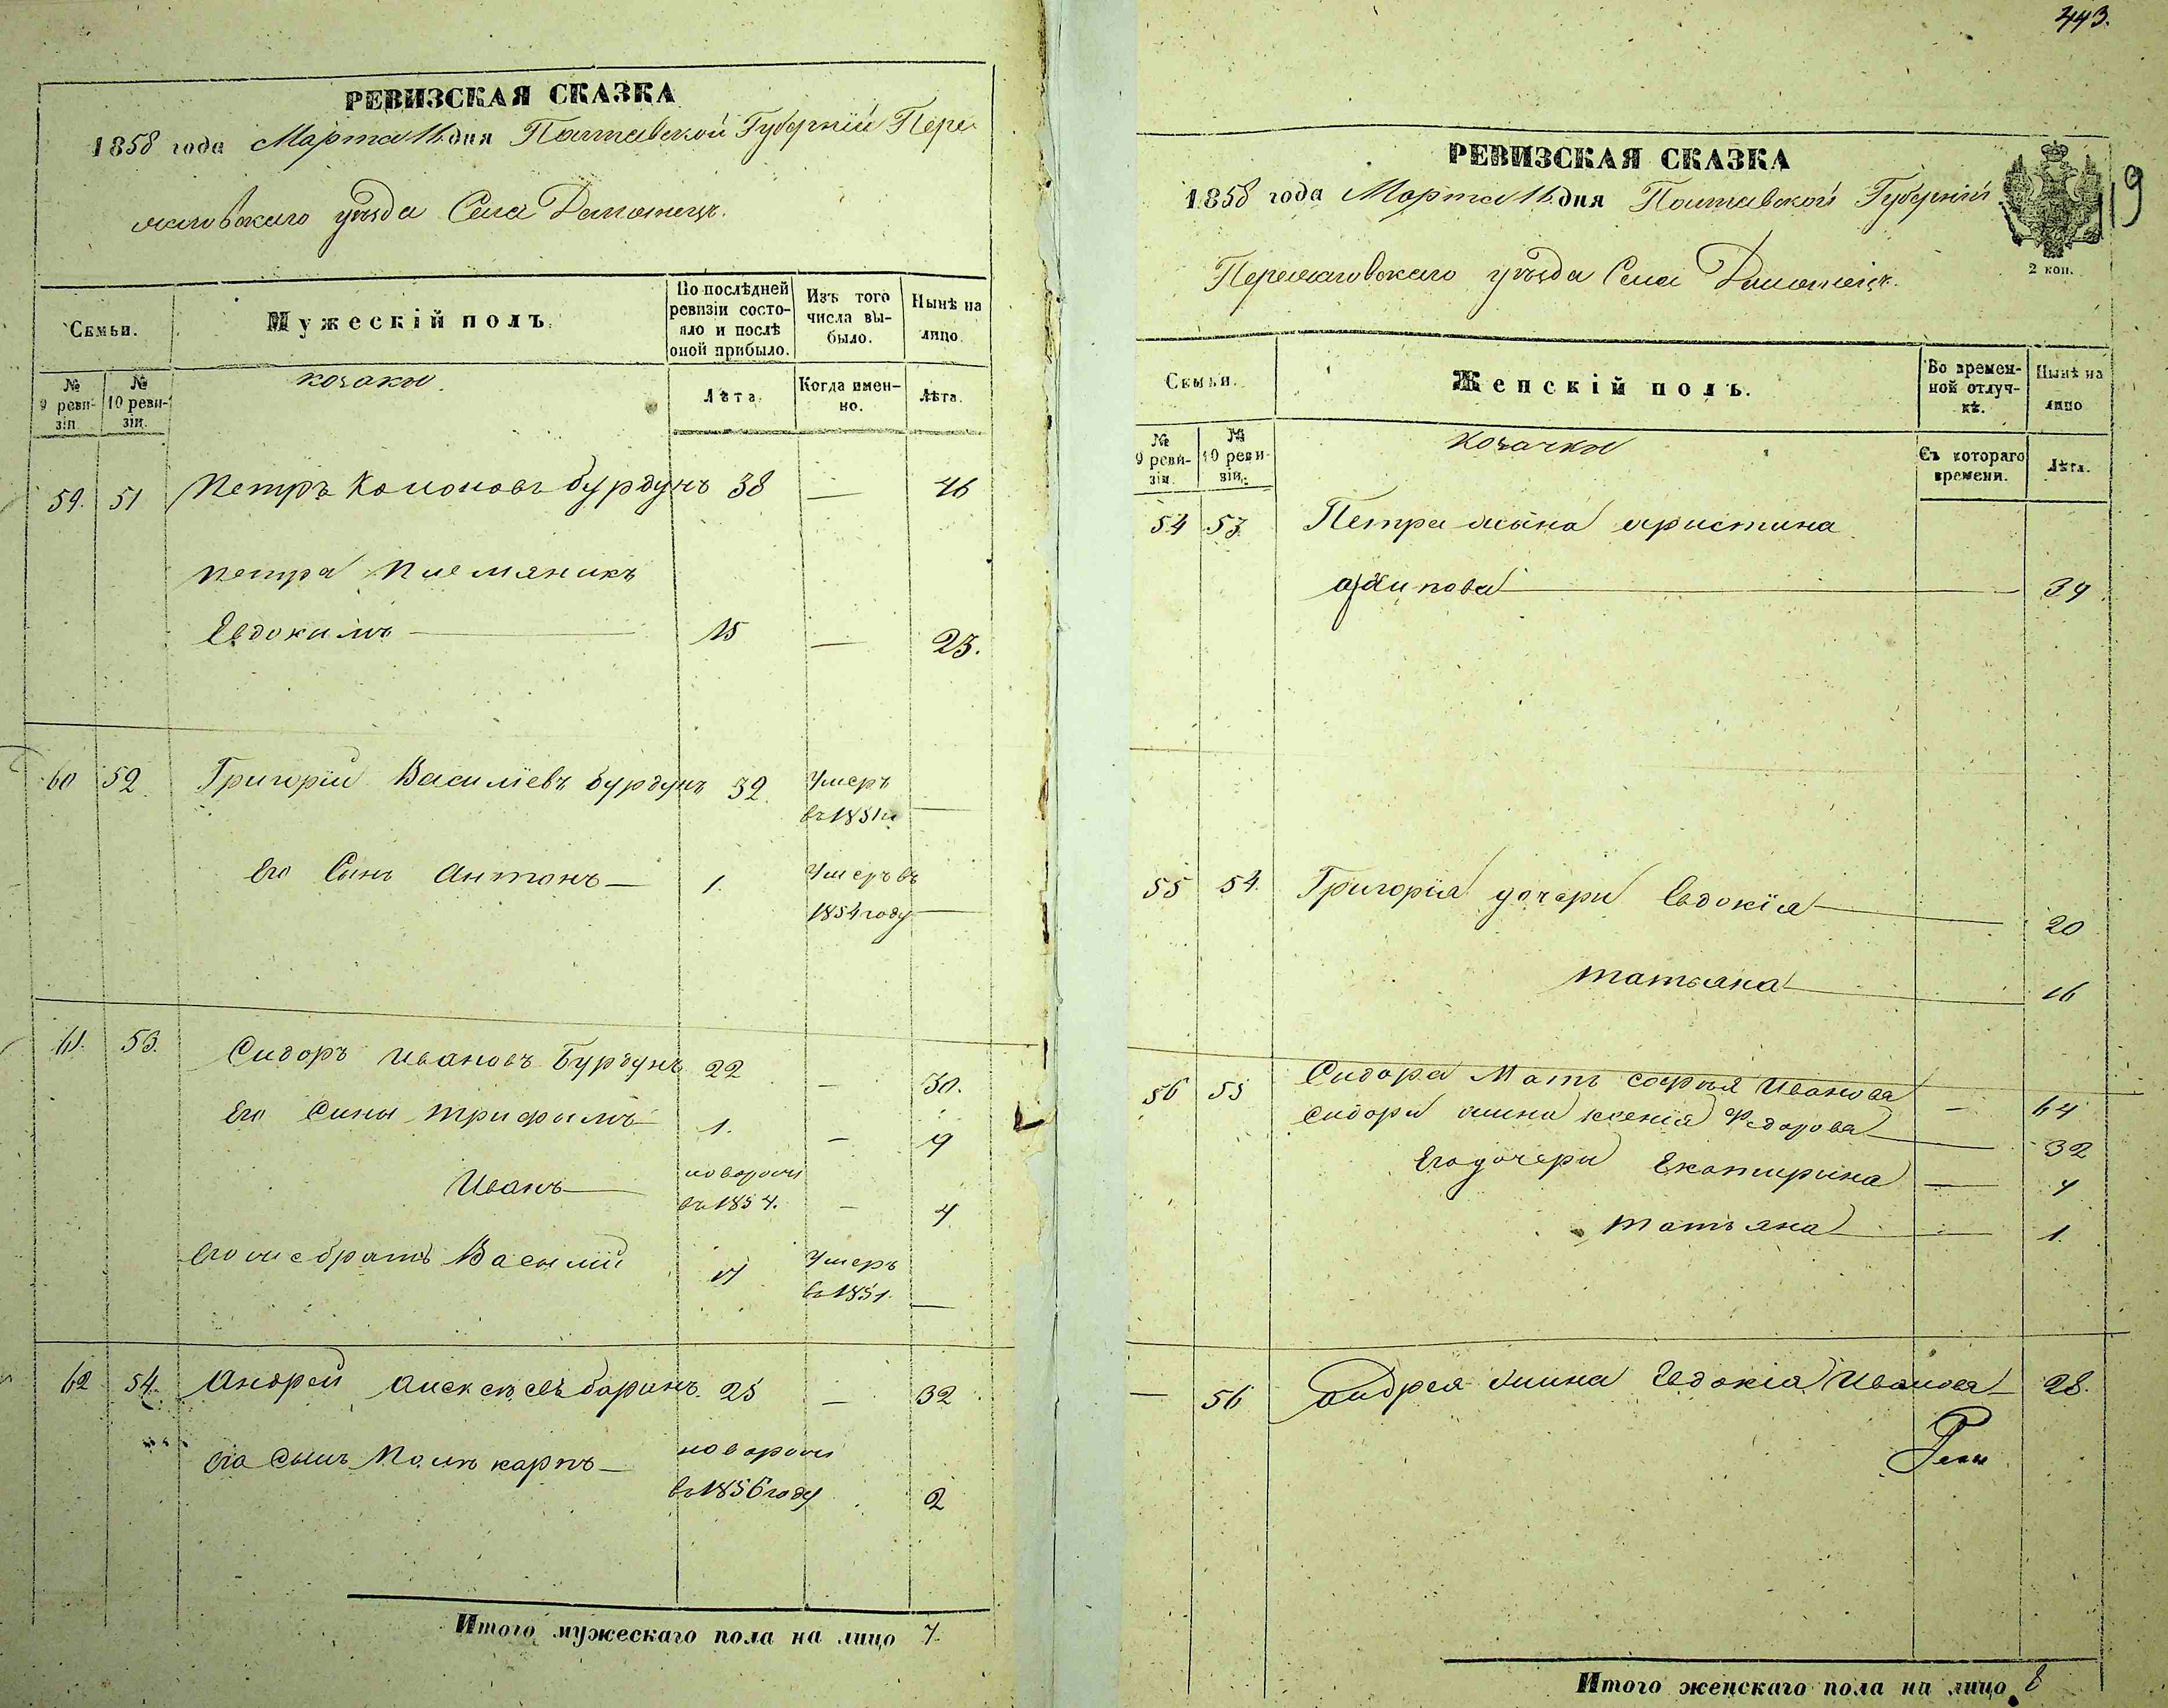 443.
РЕВИЗСКАЯ СКАЗКА
1858 года Марта 16 дня Полтавской Губернїи Пере
яславскаго уѣзда Села
Семьи.
Мужескій полъ.
По послѣдней ревизіи состояло и послѣ оной прибыло.
Изъ того числа выбыло.
Нынѣ на лицо.
№ 9 ревизіи.
№ 10 ревизіи.
козаки
Лѣта.
Когда именно.
Лѣта.
59. 51 Петръ Бурдунъ 38 — 46
Петра племяникъ
Евдокимъ — 15 — 23.
60 52 Григорїй Василїевъ бурдунъ 32. Умеръ
въ 1851 —
Его Сынъ Антонъ — 1. Умеръ въ
1854 году —
61. 53. Сидоръ Ивановъ Бурдунъ 22 — 30.
Его Сины Трифимъ 1. — 9
Иванъ — новорож
въ 1854. — 4
его же братъ Василїй 17 Умеръ
въ 1851. —
62 54. Андрей Алексѣевъ 25 — 32
его сынъ Поликарпъ — новорож
въ 1856 году 2
Итого мужескаго пола на лицо 7.
РЕВИЗСКАЯ СКАЗКА
1858 года Марта 16 дня Полтавской Губернїи
Переяславскаго уѣзда Села
119
2 коп.
Семьи.
Женскій полъ.
Во временной отлучкѣ.
Нынѣ на лицо
№ 9 ревизіи.
№ 10 ревизіи.
козачки
Съ котораго времени.
Лѣта.
54 53 Петра жына христина
архипова — 39
55 54. Григорїя дочери Евдокїя — 20
татьяна — 16
56 55 Сидора Мать софья Иванова — 64
Сидора жина ксенїя Федорова — 32
Его дочери Екатирина — 4
татьяна — 1.
— 56 андрея жина Евдокіа Иванова — 28.
Итого женскаго пола на лицо 8